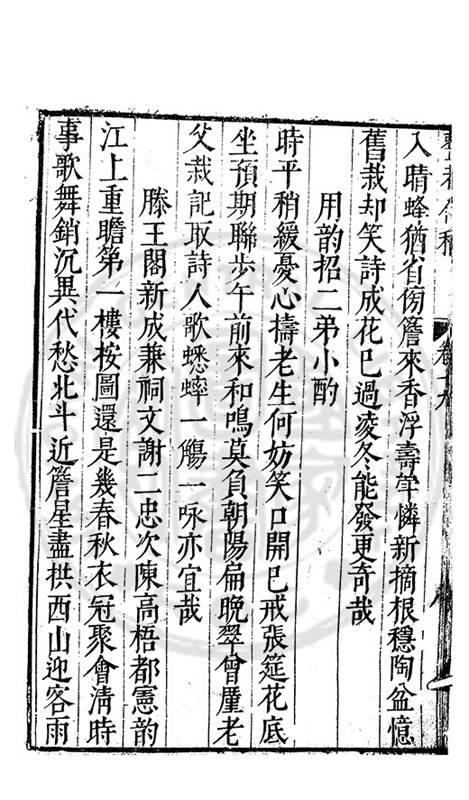 入晴蜂猶省傍簷來香浮壽斝憐新摘根穩陶盆憶
舊栽却笑詩成花巳過凌冬能發更奇哉
用韵招二弟小酌
時平稍緩憂心擣老生何妨笑口開巳戒張筵花底
坐預期聯步午前來和鳴莫負朝陽扁晚翠曾厪老
父栽記取詩人歌蟋蟀一觴一咏亦宜哉
滕王閣新成兼祠文謝二忠次陳高梧都憲韵
江上重瞻第一樓按圖還是幾春秋衣冠聚會清時
事歌舞銷沉異代愁北斗近簷星盡拱西山迎客雨